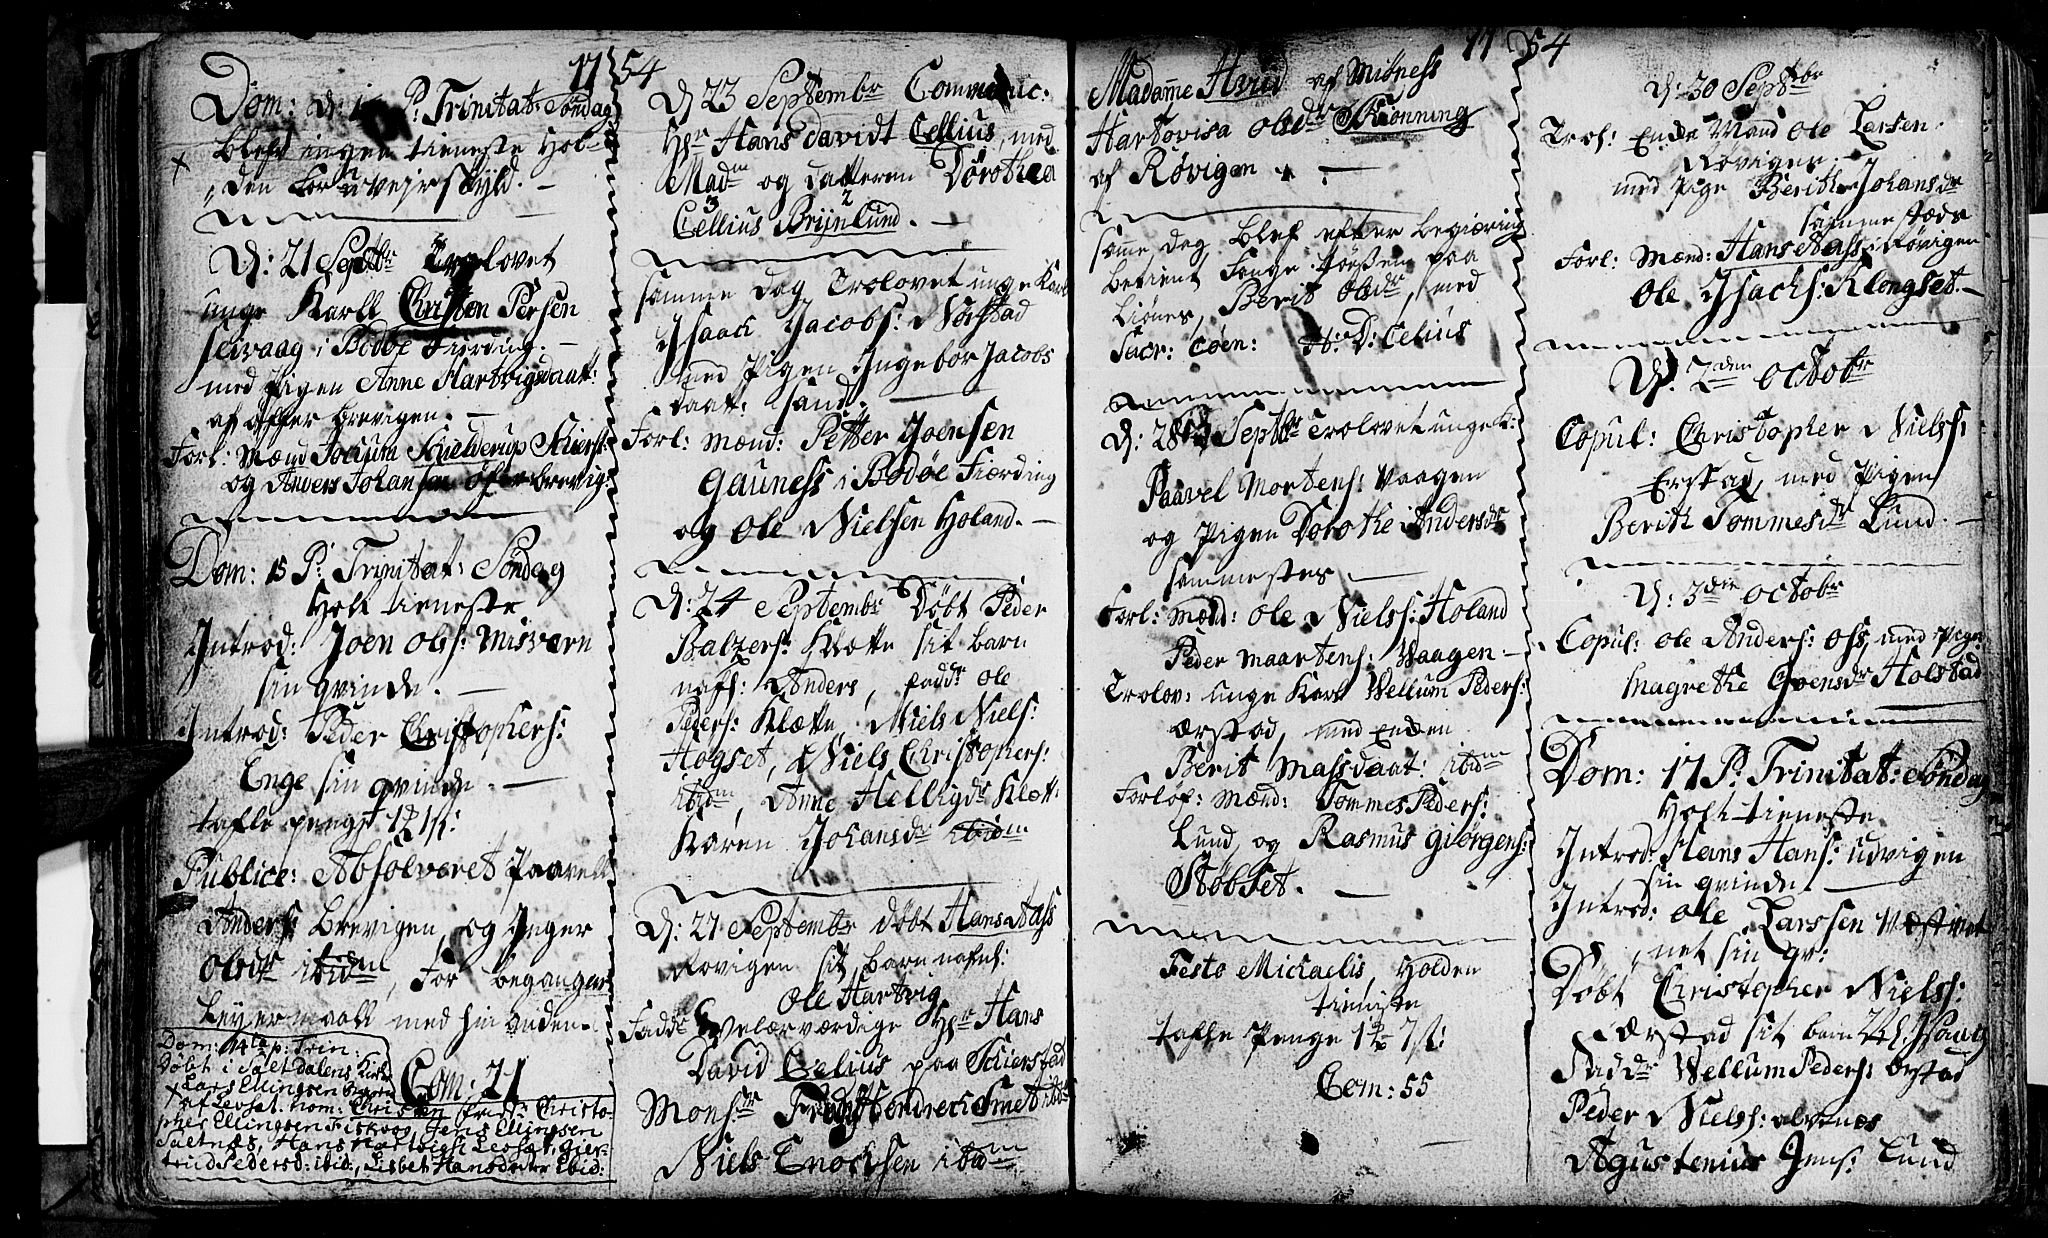 17 54
Dom: d: P: Trinitat: Søndag
Blef ingen tieneste Hol-
den for uvejr skyld. -
D: 21 Septbr Trolovet
unge Karll Christen Persen
Seivaag i Bodøe Fierding. -
med Pigen Anne Hartvigsdaat:
af offer brevigen. -
Forl: Mænd Jockum Schielderup Schiers:
og Anders Johansen øfre brevig:
Dom: 15 P: Trinitat: Søndag
Holt tieneste
Introd: Joen Ols: Misværn
sin qvinde. -
Introd: Peder Christophers:
Enge sin qvinde. -
tafle penge
Publice: Absolveret Paavell
Anders: brevigen, og Inger
Olsdr ibidm, for begangen
Leyermaall med hinanden.
Com: 21
Dom: 14ta p: Trin:
Døbt i Saltdalens Kirke
Lars Ellingsen
af Leoset. nom: Christen Fadd: Christo-
pher Ellingsen Fiskvog, Jens Ellingsen
Saltnæs, Hans Hartvigs: Leosat, Gier-
trud Pedersd: ibid:, Lisbet Hansdatter ibid:
D 23 Septembr Communic:
Hr Hans davidt Cellius, med
Madm og datteren Dorothea
3 2
Cellius Brijnlund. -
samme dag Trolovet unge Karl
Isaach Jacobs: Nordstad
med Pigen Ingebor Jacobs
daat: Sand. -
Forl: Mænd: Petter Joensen
Gauness i Bodøe Fiærding
og Ole Nielsen Holand. -
D: 24 Septembr Døbt Peder
Balzers: Kløtte sit barn
nafn: Anders, fadd: Ole
Peders: Kløtte, Niels Niels:
Hogset, Niels Christophers:
ibidm, Anne Helligdr Kløt:
Karen Johansdr ibidm
D: 27 Septembr døbt Hans Aass
Rovigen sit barn nafnl:
Ole Hartvig
Faddr Velærværdige Hr Hans
David Celius paa Schierstad
Monsr Fredr Hendrech Smet ibidm
Niels Enochsen ibidm
17 54
Madame Hvid af Misness
Hartvvisa Olsdr Rønning
af Røvigen -
same dag blef efter begiæring
betient Songe Konen paa
Liønes, Berit Olsdr, med
Sacr: Cøen: H: D: Celius
D: 28 Septbr Trolovet unge K:
Paavel Mortens: Vaagen
og Pigen Dorothe Andersdr
sammesteds -
Forl: Mænd: Ole Niels: Holand
Peder Maartens: Vaagen -
Trolov: unge Karl Vellum Peders:
Ærstad, med Enken
Berit Massdaat: ibidm
Forlof: Mænd: Tommes Peders:
Lund, og Rasmus Giørgens:
Støbset. -
Festo Michaelis, Holden
tieniste
tafle Penge
Com: 55
D: 30 Septbr
Trol: Enke Mand Ole Larsen
Røvigen
med Pige Berith Johansdr
samme stæds
Forl: Mænd: Hans Aass, Røvigen
Ole Isachs: Klongset. -
D: 2den Octobr
Copul: Christopher Niels:
Erstad, med Pigen
Berith Tommesdr Lund. -
D: 3die Octobr
Copul: Ole Anders: Oss, med Pigen
Magrethe Joensdr Holstad
Dom: 17 P: Trinitat: Søndag
Holt tieneste
Introd: Hans Hans: udvigen
sin qvinde. -
Introd: Ole Larssen Væstvat
net sin qv:
Døbt Christopher Niels:
Ærstad sit barn Isaag
Faddr Vellum Peders: Ærstad
Peder Niels: alvenes
Agustenius Jens: Lund